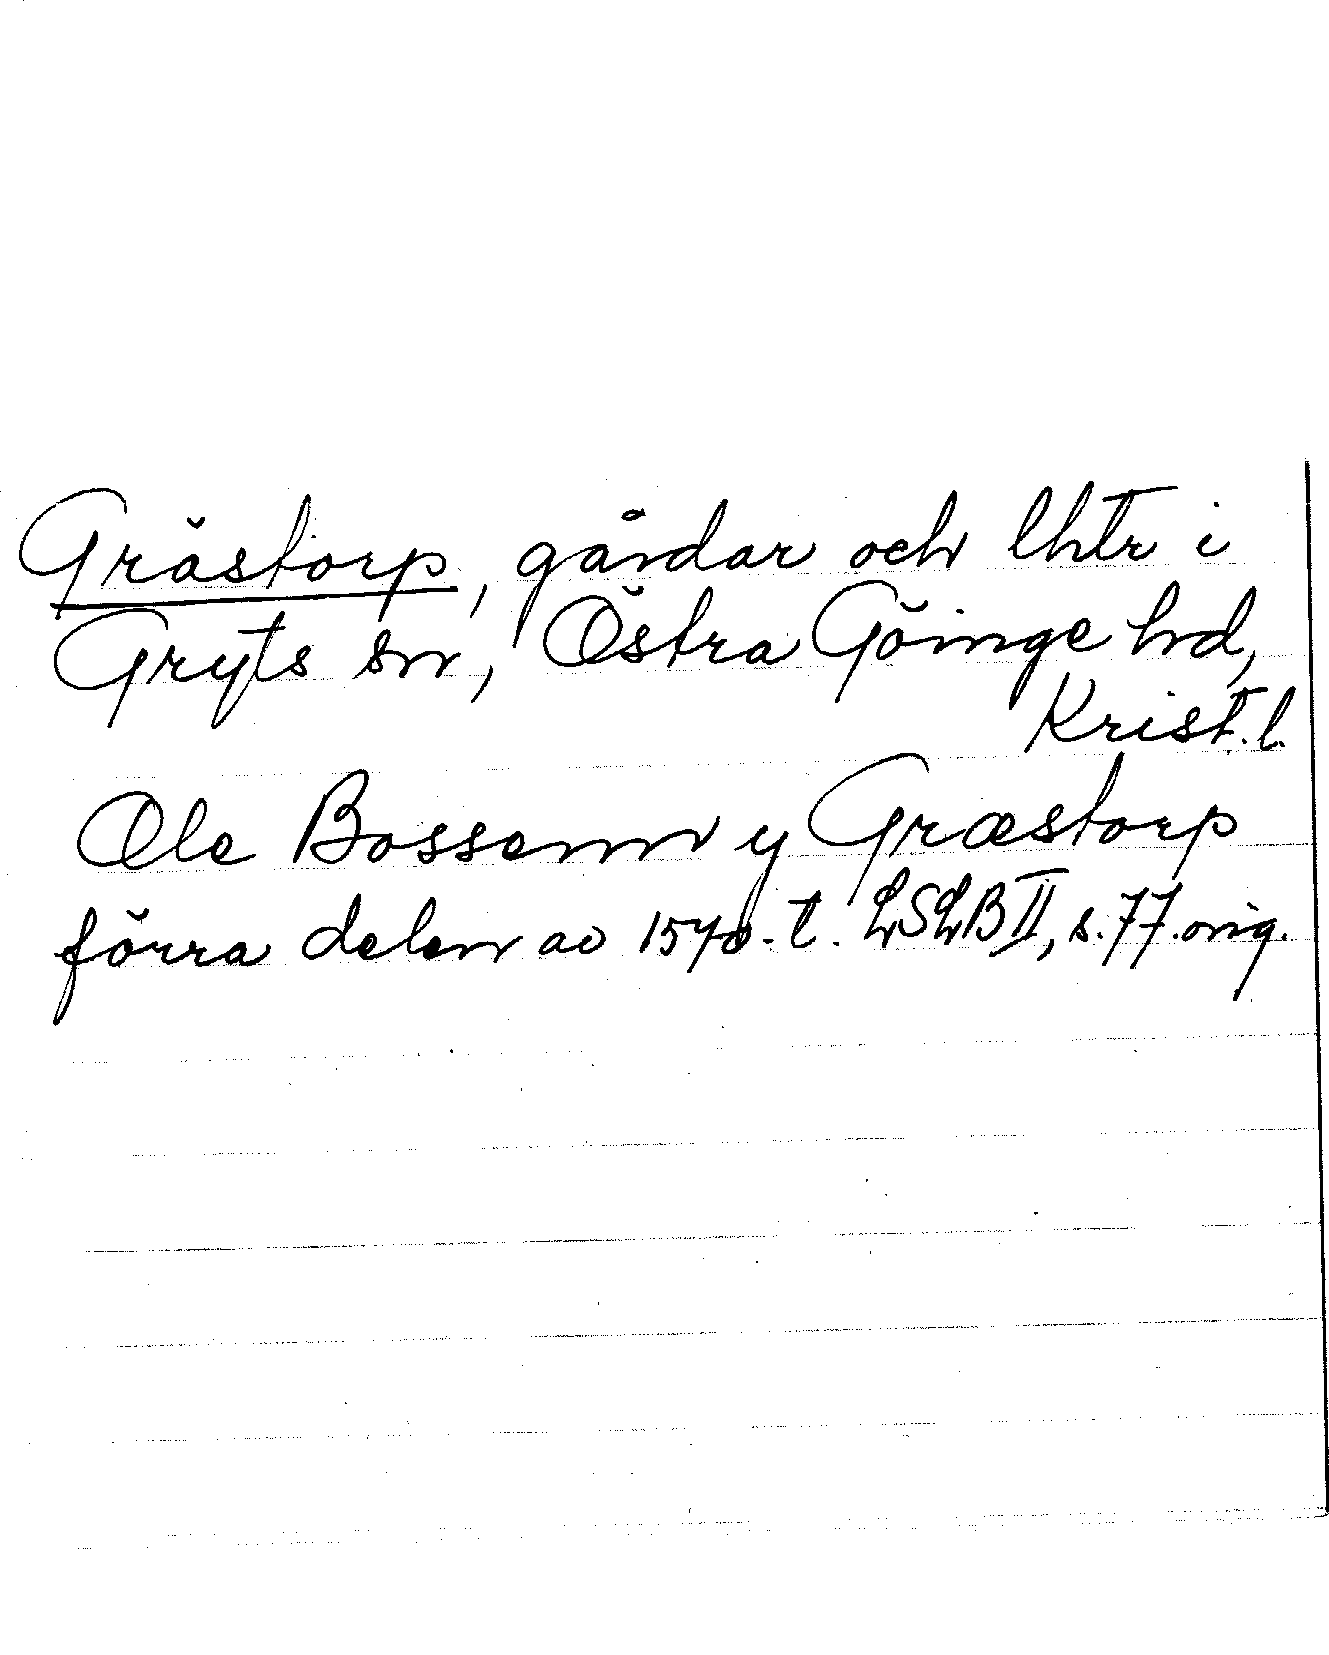 Grästorp, gårdar och lhtr i
Gryts sn, Östra Göinge hd,
Krist. l.
Ole Bossenn y Græstorp
förra delen av 1570-t. LSLB II, s. 77. orig.